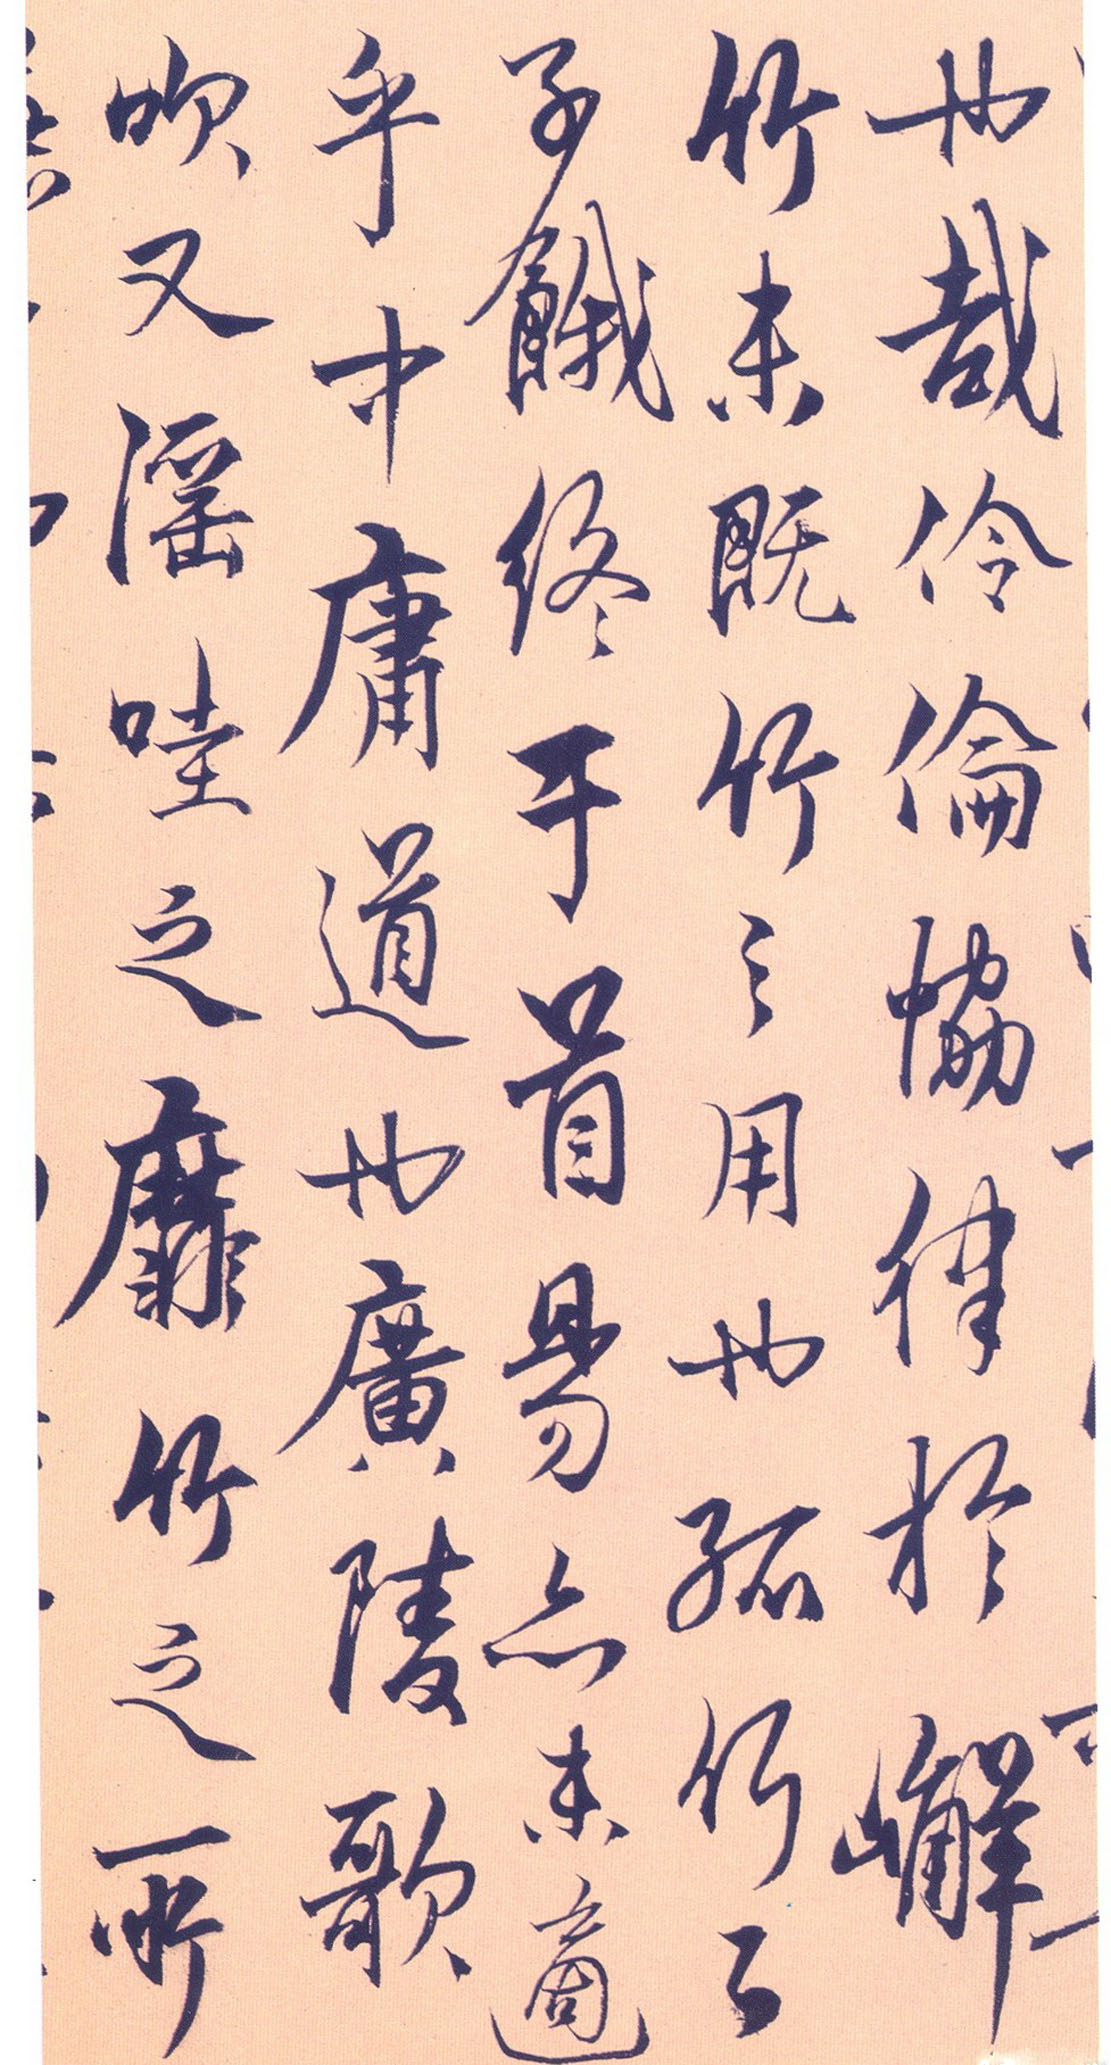 也哉伶倫協律於嶰
竹未既竹之用也孤竹二
子餓終于首昜亦未適
乎中庸道也廣陵歌
吹又滛哇之靡竹之所